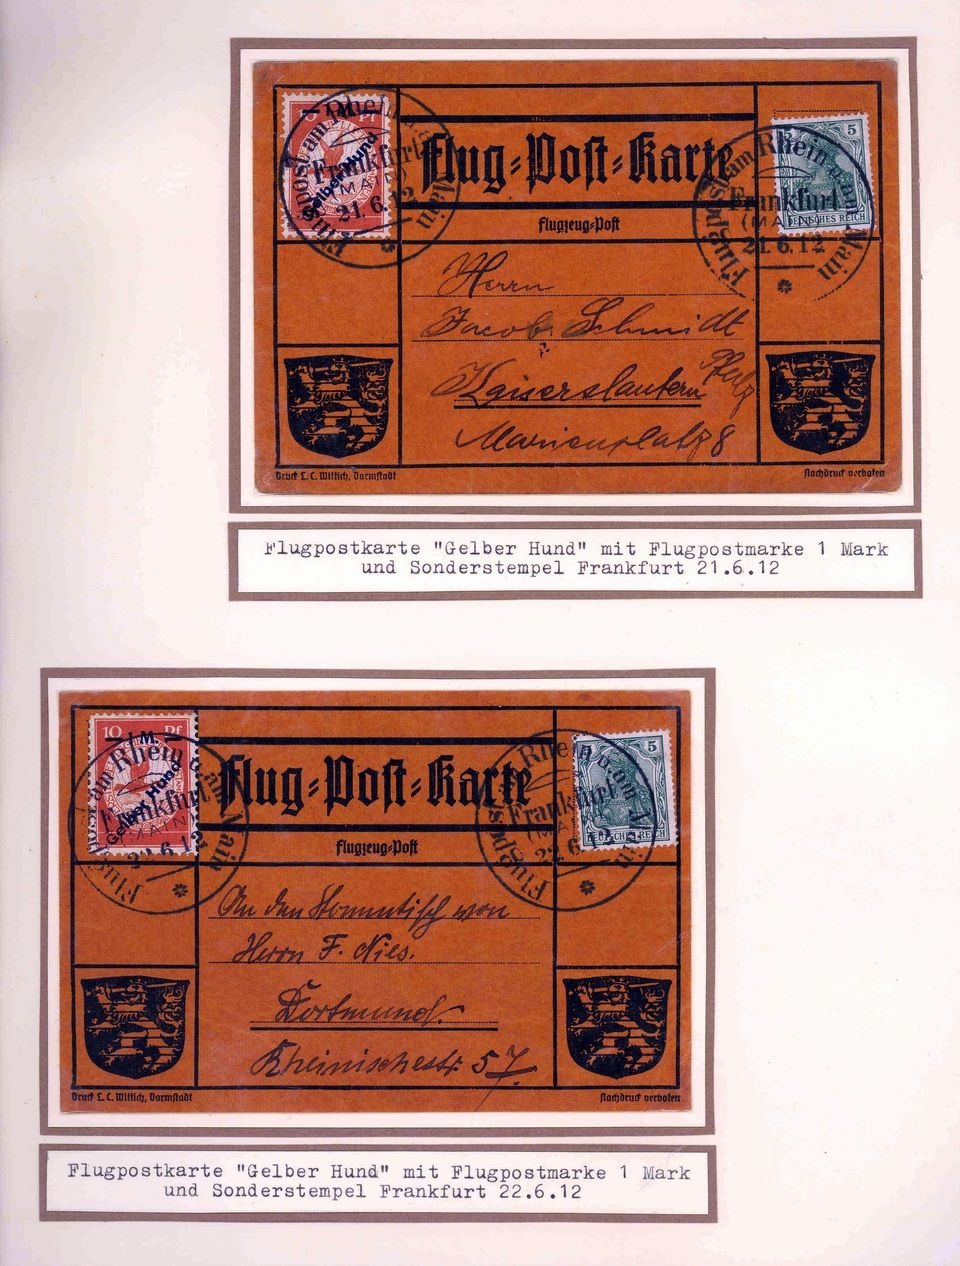 10 Pf
1 M.
Gelber Hund
Flugpost am Rhein u. am Main
Frankfurt
(MAIN)
21.6.12
Flug=Post=Karte
Flugzeug=Post
5
DEUTSCHES REICH
Flugpost am Rhein u. am Main
Frankfurt
(MAIN)
21.6.12
Herrn
Jacob Schmidt
Kaiserslautern Pfalz
Marienplatz 8
Druck L. C. Wittich, Darmstadt
Nachdruck verboten
Flugpostkarte "Gelber Hund" mit Flugpostmarke 1 Mark
und Sonderstempel Frankfurt 21.6.12
10 Pf
1 M.
Gelber Hund
Flugpost am Rhein u. am Main
Frankfurt
(MAIN)
22.6.12
Flug=Post=Karte
Flugzeug=Post
5
DEUTSCHES REICH
Flugpost am Rhein u. am Main
Frankfurt
(MAIN)
22.6.12
An den Stammtisch von
Herrn F. Nies.
Dortmund.
Rheinischestr. 57.
Druck L. C. Wittich, Darmstadt
Nachdruck verboten
Flugpostkarte "Gelber Hund" mit Flugpostmarke 1 Mark
und Sonderstempel Frankfurt 22.6.12